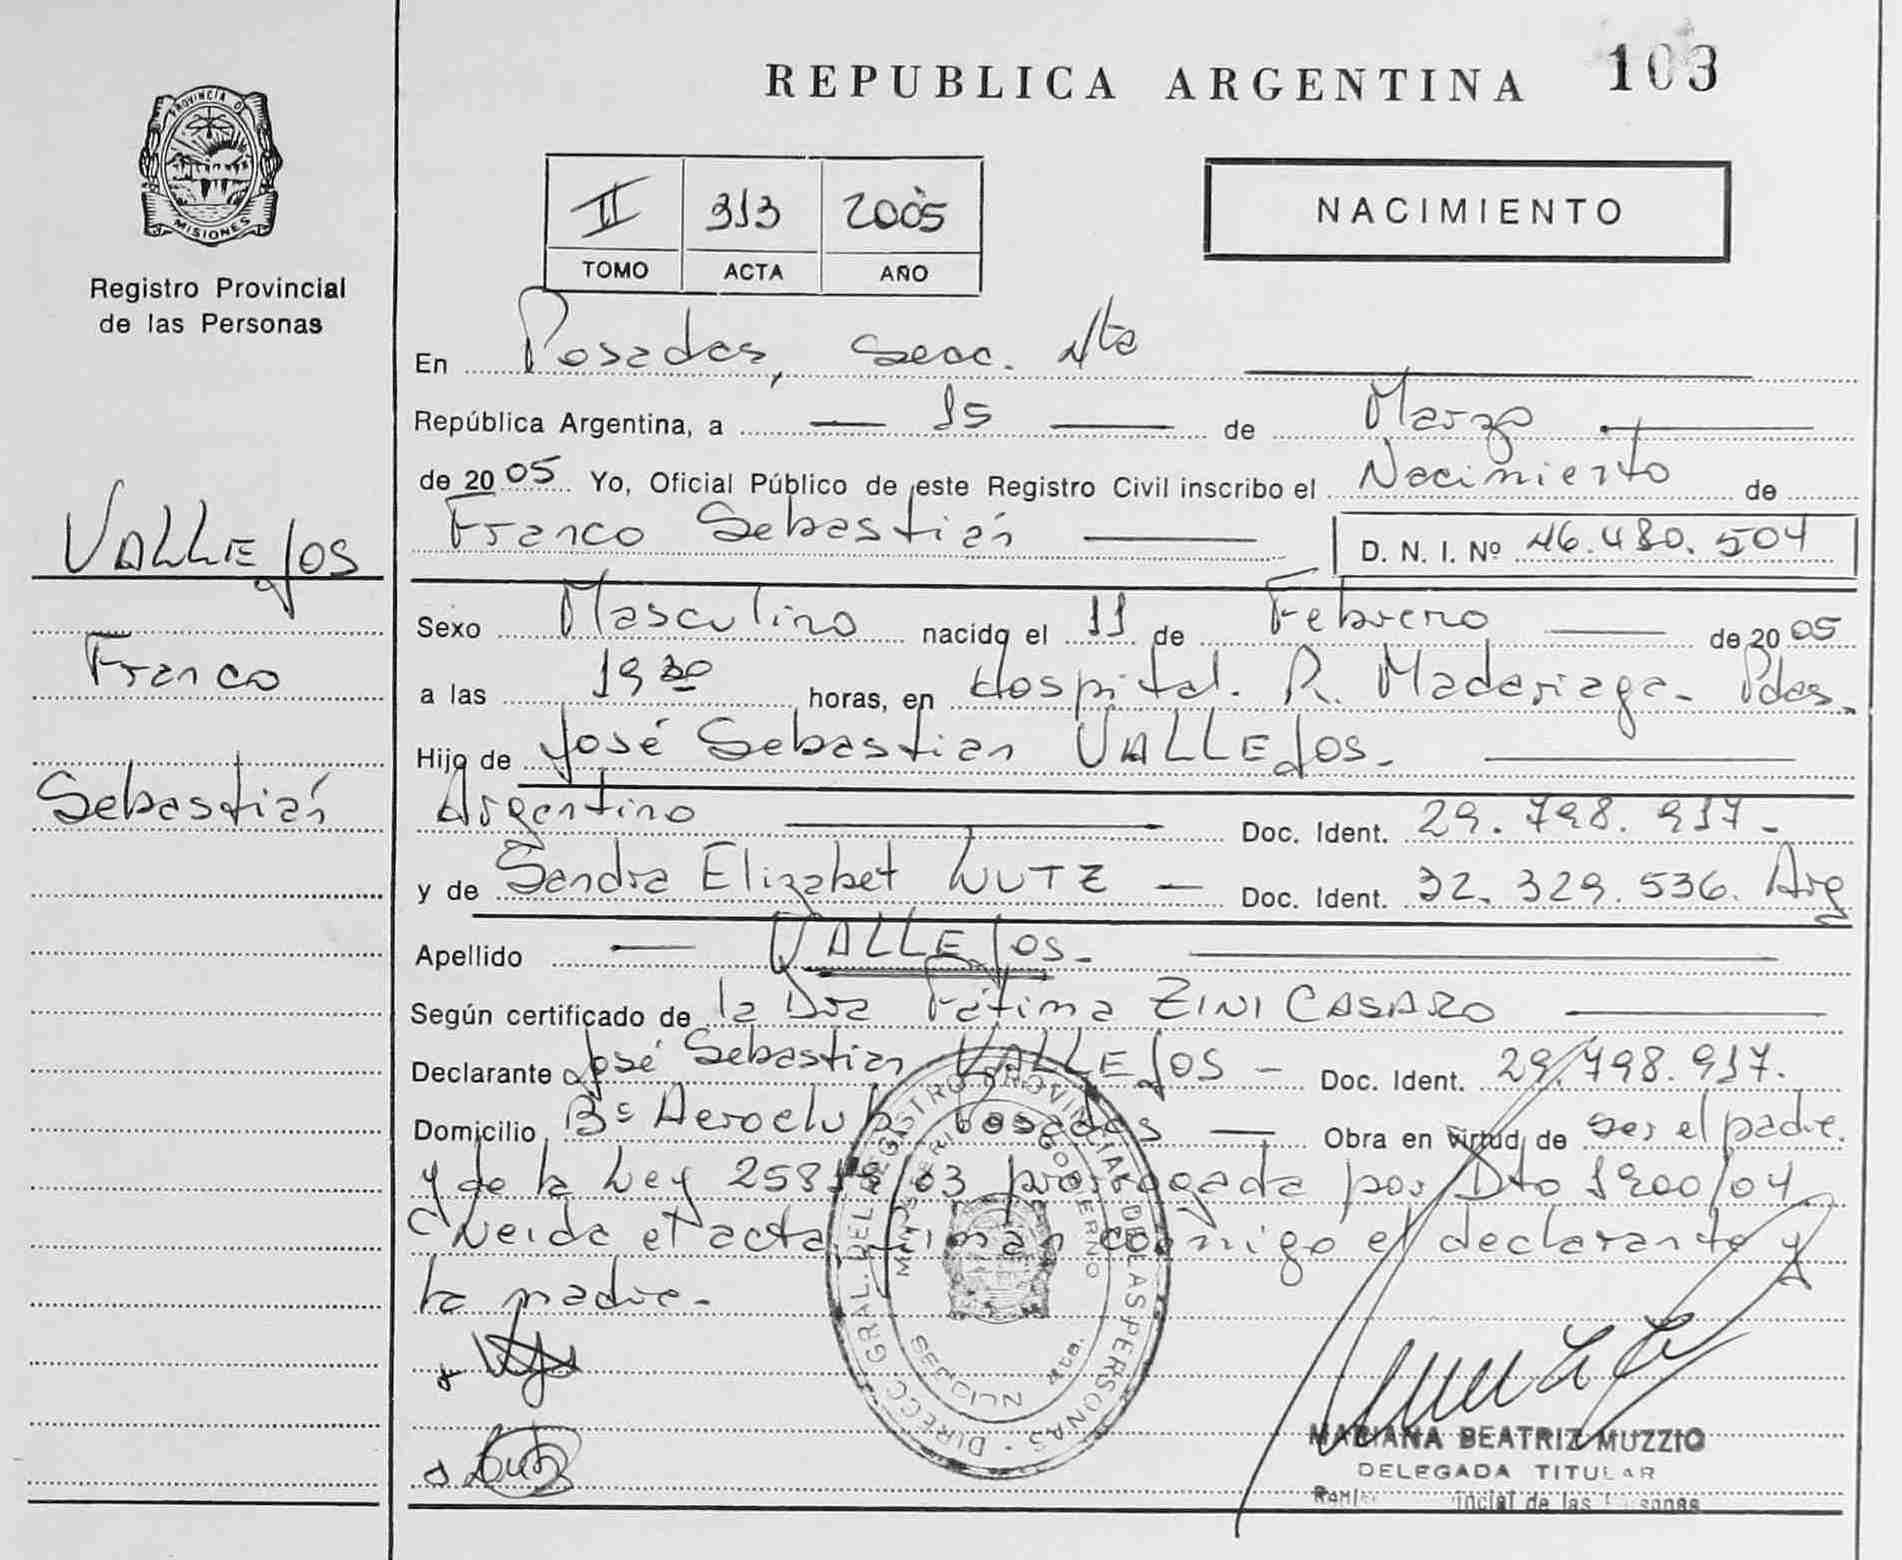 REPUBLICA ARGENTINA 103
PROVINCIA DE
MISIONES
Registro Provincial
de las Personas
II 313 2005
TOMO ACTA AÑO
NACIMIENTO
En Posadas, Secc. 4ta
República Argentina, a 15 de Marzo
de 2005 Yo, Oficial Público de este Registro Civil inscribo el Nacimiento de
Franco Sebastián D. N. I. Nº 46.480.504
VALLEjos
Franco
Sebastián
Sexo Masculino nacido el 11 de Febrero de 2005
a las 19 30 horas, en Hospital. R. Madariaga- Pdas.
Hijo de José Sebastian VALLEjos.
Argentino Doc. Ident. 29.798.917.
y de Sandra Elizabet LUTZ Doc. Ident. 32.329.536. Arg
Apellido VALLEjos.
Según certificado de la Dra Fátima ZINI CASARO
Declarante José Sebastian VALLEjos - Doc. Ident. 29.798.917.
Domicilio Bº Aeroclub Posadas Obra en virtud de ser el padre.
y de la Ley 25819/03 prorrogada por Dto 1900/04
Leida el acta, firman conmigo el declarante y
la madre.
DIRECC. GRAL. DEL REGISTRO PROVINCIAL DE LAS PERSONAS
MINISTERIO GOBERNO
SECCION 4ta.
MARIANA BEATRIZ MUZZIO
DELEGADA TITULAR
de las